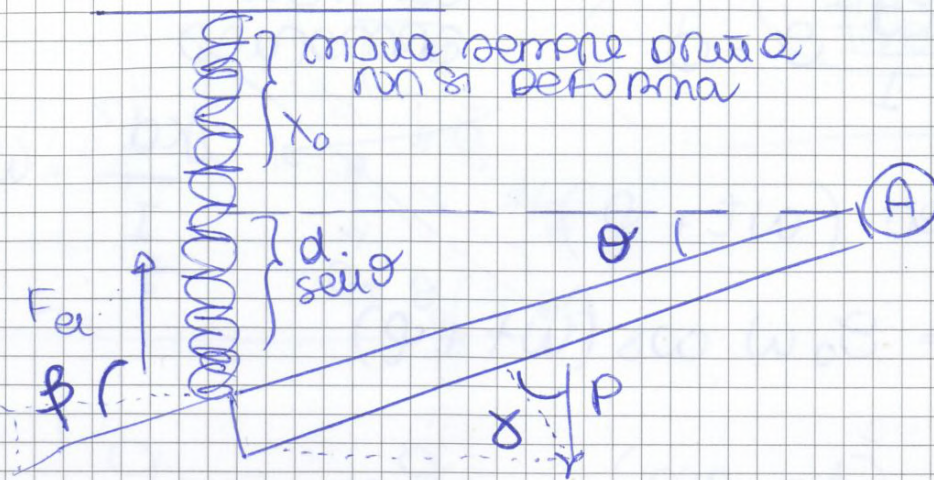 molla sempre dritta
non si deforma
x₀
A
θ
d.
senθ
Fel
β
P
γ